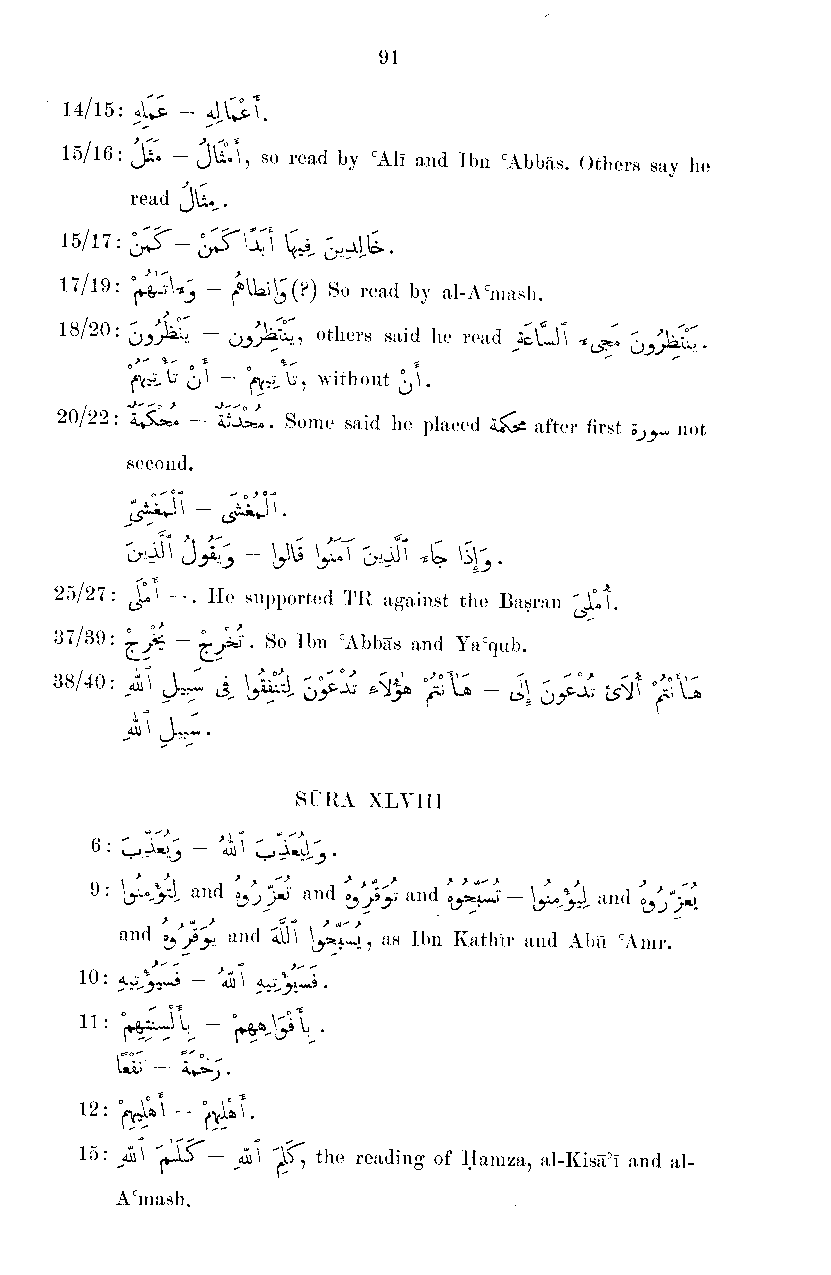 91
14/15: عَمَلِهِ – أَعْمَالِهِ.
15/16: مَثَلُ – أَمْثَالُ, so read by ʿAlī and Ibn ʿAbbās. Others say he
read مِثَالُ.
15/17: كَمَنْ – خَالِدِينَ فِيهَا أَبَدًا كَمَنْ.
17/19: وَءَاتَٮٰهُمْ – وَانطاهُم (?) So read by al-Aʿmash.
18/20: يَنْظُرُونَ – يَنْتَظِرُون, others said he read يَنْتَظِرُونَ مَجِىءَ ٱلسَّاعَةِ.
أَنْ تَأْتِيَهُمْ – تَأْتِيهِمْ, without أَنْ.
20/22: مُحْكَمَةٌ – مُحْدَثَةٌ. Some said he placed محكمة after first سورة not
second.
ٱلْمَغْشِىِّ – ٱلْمُغْشَى.
وَيَقُولُ ٱلَّذِينَ – وَإِذَا جَاءَ ٱلَّذِينَ آمَنُوا قَالُوا.
25/27: أَمْلَى –. He supported TR against the Baṣran أُمْلِىَ.
37/39: يُخْرِجْ – تُخْرِجْ. So Ibn ʿAbbās and Yaʿqub.
38/40: هَٰأَنْتُمْ هٰؤُلَاءِ تُدْعَوْنَ لِتُنْفِقُوا فِى سَبِيلِ ٱللهِ – هَٰأَنْتُمْ أُلَائِ تُدْعَوْنَ إِلَى
سَبِيلِ ٱللهِ.
SŪRA XLVIII
6: وَيُعَذِّبَ – وَلِيُعَذِّبَ ٱللهُ.
9: لِتُؤْمِنُوا and تُعَزِّرُوهُ and تُوَقِّرُوهُ and تُسَبِّحُوهُ – لِيُؤْمِنُوا and يُعَزِّرُوهُ
and يُوَقِّرُوهُ and يُسَبِّحُوا ٱللَّهَ, as Ibn Kathīr and Abū ʿAmr.
10: فَسَيُؤْتِيهِ – فَسَيُؤْتِيهِ ٱللهُ.
11: بِأَلْسِنَتِهِمْ – بِأَفْوَاهِهِمْ.
نَفْعًا – رَحْمَةً.
12: أَهْلِيهِمْ – أَهْلِهِمْ.
15: كَلَـٰمَ ٱللهِ – كَلِمَ ٱللهِ, the reading of Ḥamza, al-Kisāʾī and al-
Aʿmash.